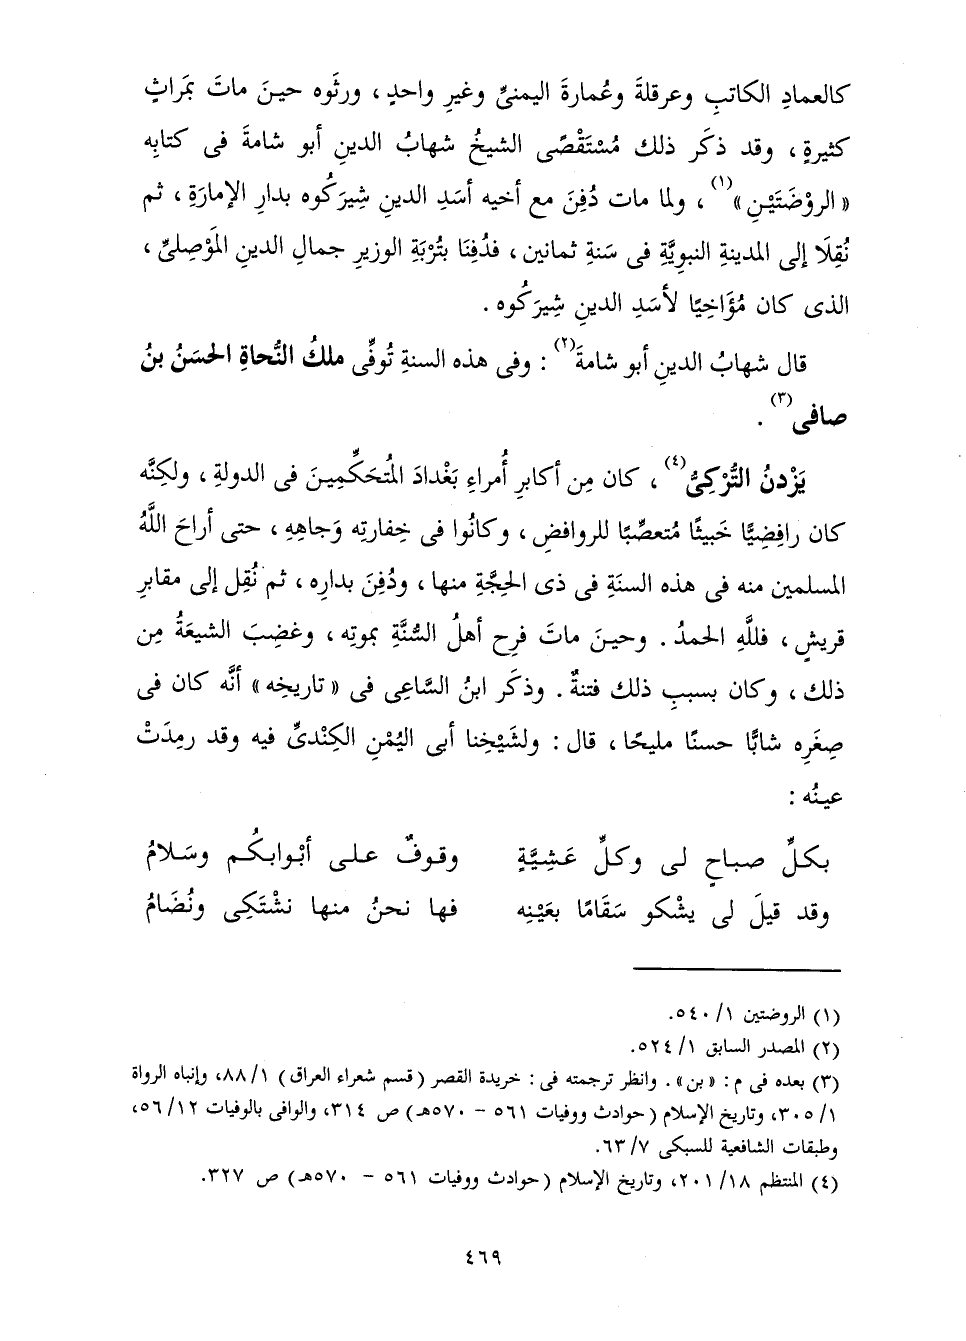 كالعمادِ الكاتبِ وعرقلةَ وعُمارةَ اليمنيِّ وغيرِ واحدٍ ، ورثَوه حينَ ماتَ بمَراثٍ
كثيرةٍ ، وقد ذكَر ذلك مُسْتَقْصًى الشيخُ شهابُ الدينِ أبو شامةَ فى كتابِه
« الروْضَتَيْنِ »(١) ، ولما مات دُفِنَ مع أخيه أسَدِ الدينِ شِيرَكُوه بدارِ الإمارَةِ ، ثم
نُقِلَا إلى المدينةِ النبويَّةِ فى سَنةِ ثمانين ، فدُفِنَا بتُرْبَةِ الوزيرِ جمالِ الدينِ المَوْصِلىِّ ،
الذى كان مُؤَاخِيًا لأسَدِ الدينِ شِيرَكُوه .
قال شهابُ الدينِ أبو شامةَ(٢) : وفى هذه السنةِ تُوفِّى ملكُ النُّحاةِ الحسَنُ بنُ
صافى(٣) .
يَزْدنُ التُّرْكِىُّ(٤) ، كان مِن أكابرِ أُمراءِ بَغْدادَ المُتحَكِّمِينَ فى الدولةِ ، ولكِنَّه
كان رافِضِيًّا خَبيثًا مُتعصِّبًا للروافضِ ، وكانُوا فى خِفارتِه وَجاهِهِ ، حتى أراحَ اللَّهُ
المسلمين منه فى هذه السنَةِ فى ذى الحِجَّةِ منها ، ودُفِنَ بدارِه ، ثم نُقِل إلى مقابرِ
قريشٍ ، فللَّهِ الحمدُ . وحينَ ماتَ فرِح أهلُ السُّنَّةِ بموتِه ، وغضِبَ الشيعَةُ مِن
ذلك ، وكان بسببِ ذلك فتنةٌ . وذكَر ابنُ السَّاعِى فى « تاريخِه » أنَّه كان فى
صِغَرِه شابًّا حسنًا مليحًا ، قال : ولشَيْخِنا أبى اليُمْنِ الكِنْدىِّ فيه وقد رمِدَتْ
عينُه :
بكلِّ صباحٍ لى وكلِّ عَشِيَّةٍ    وقوفٌ على أبْوابكُم وسَلامُ
وقد قيلَ لى يشْكو سَقَامًا بعَيْنِه    فها نحنُ منها نشْتَكِى ونُضَامُ
(١) الروضتين ١/ ٥٤٠.
(٢) المصدر السابق ١/ ٥٢٤.
(٣) بعده فى م : « بن » . وانظر ترجمته فى : خريدة القصر ( قسم شعراء العراق ) ١/ ٨٨، وإنباه الرواة
١/ ٣٠٥، وتاريخ الإسلام ( حوادث ووفيات ٥٦١ - ٥٧٠هـ ) ص ٣١٤، والوافى بالوفيات ١٢/ ٥٦،
وطبقات الشافعية للسبكى ٧/ ٦٣.
(٤) المنتظم ١٨/ ٢٠١، وتاريخ الإسلام ( حوادث ووفيات ٥٦١ - ٥٧٠هـ ) ص ٣٢٧.
٤٦٩